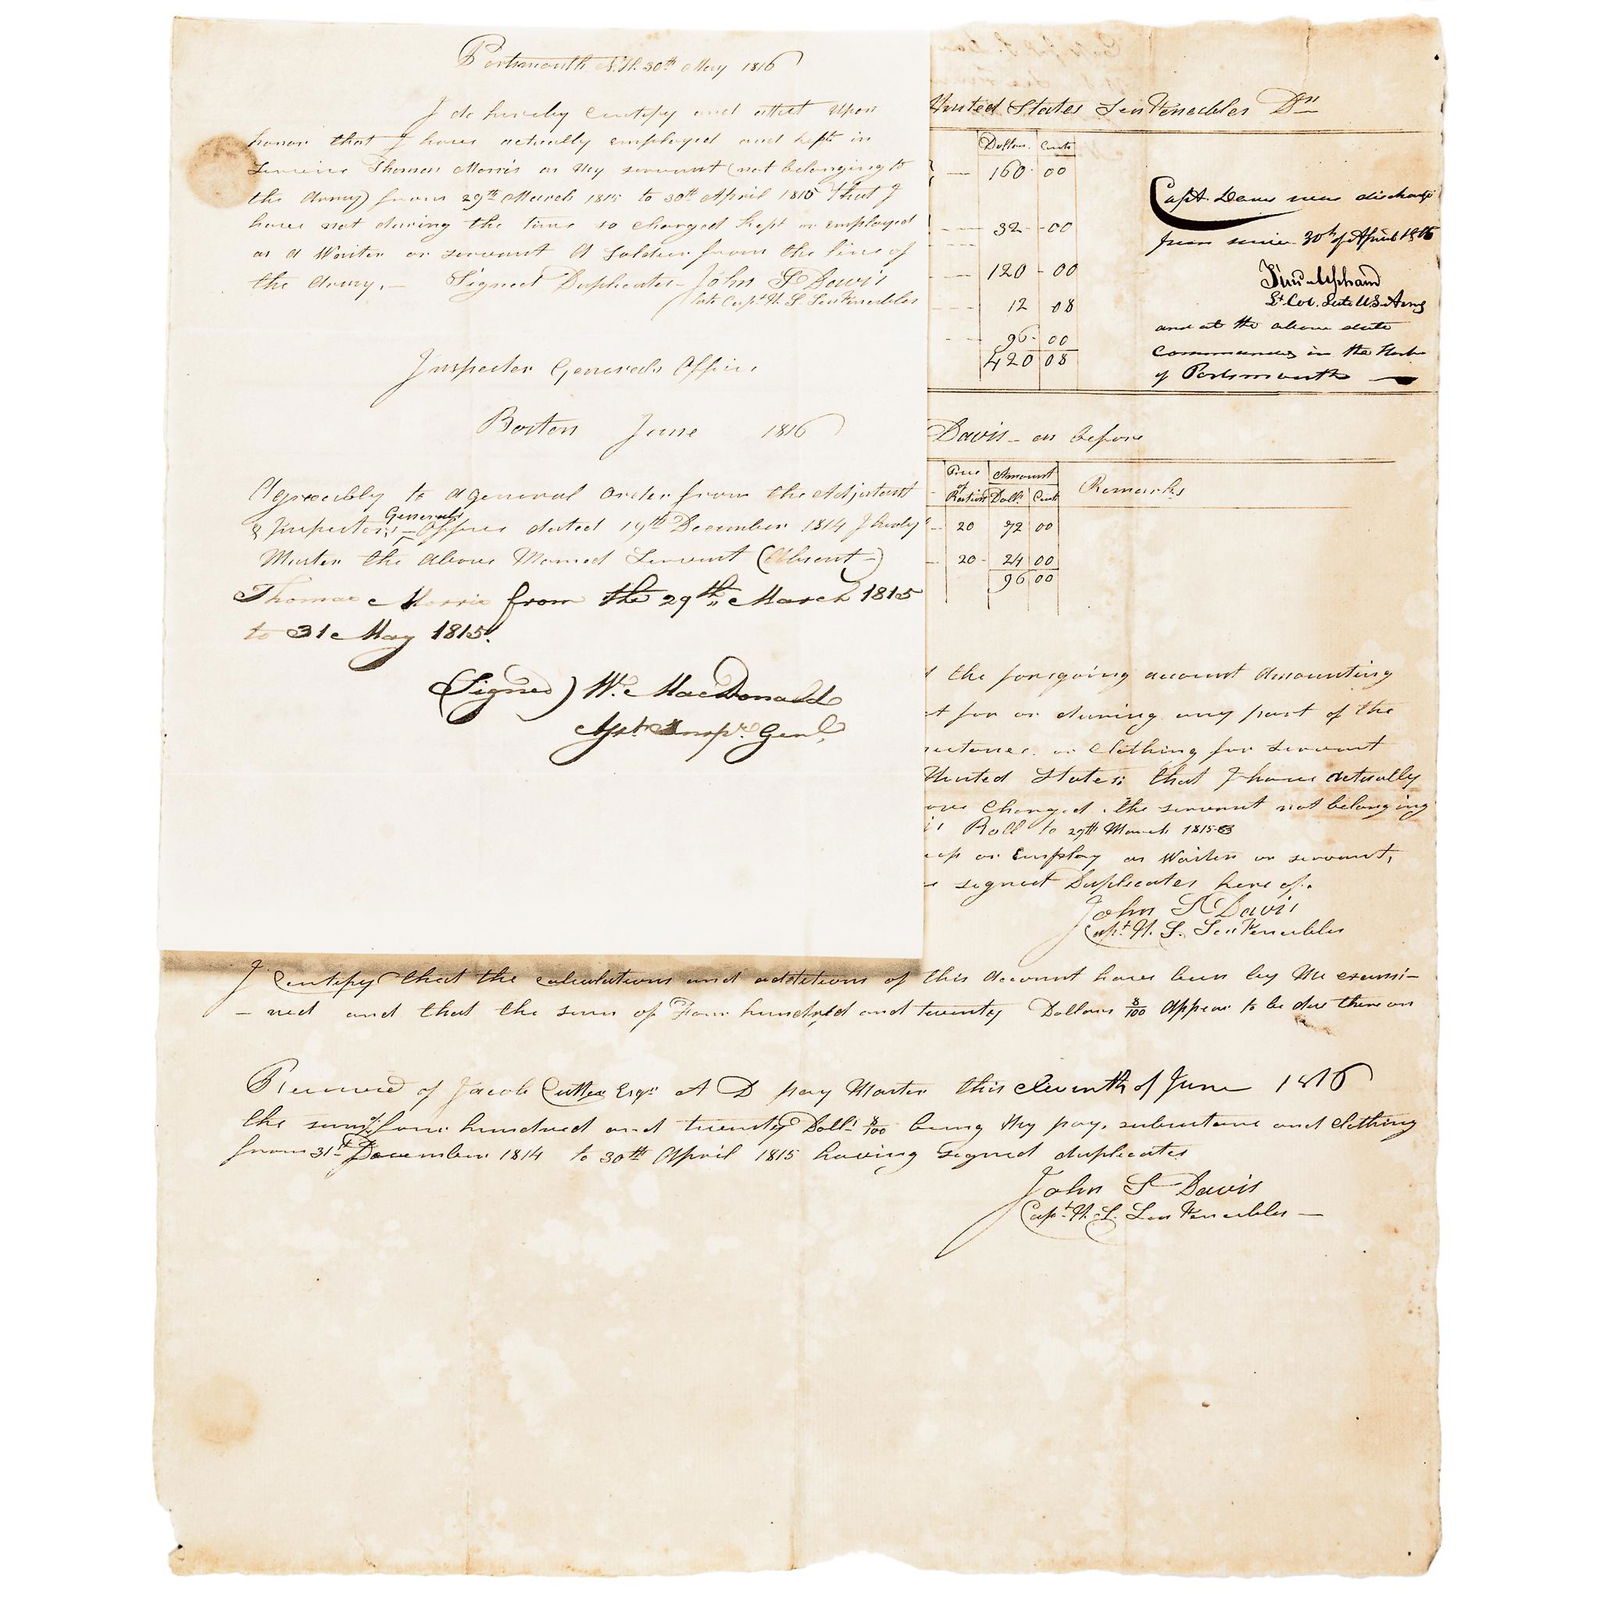 Portsmouth N.H. 30th May 1816
I do hereby certify and attest upon
honor that I have actually employed and kept in
service Thomas Morris as my servant (not belonging to
the Army) from 29th March 1815 to 30th April 1815 that I
have not during the time so charged kept or employed
as a Waiter or servant a Soldier from the line of
the Army.— Signed Duplicates— John S Davis
late Capt N. S. Sea Fencibles
Inspector General's Office
Boston June 1816
Agreeably to a general order from the Adjutant
& Inspector General's Office dated 19th December 1814 I hereby
Muster the above Named Servant (Absent—)
Thomas Morris from the 29th March 1815
to 31 May 1815.
(Signed) Wm MacDonald
Asst Inspr Genl
United States Sea Fencibles Dn
Dollars Cents
160 00
32 00
120 00
12 08
96 00
420 08
Capt. Davis was discharged
from service 30th of April 1815
Upham
Lt Col. late U.S. Army
and at the above date
commanded in the Harbor
of Portsmouth
Davis— as before
Price of Rations Amount Remarks
Dolls Cents
20 72 00
20 24 00
96 00
the foregoing account amounting
for or during any part of the
or clothing for servant
United States; that I have actually
charged, the servant not belonging
Roll to 29th March 1815
or employ as Waiter or servant,
signed Duplicates here of.
John S Davis
Capt N. S. Sea Fencibles
I certify that the calculations and additions of this Account have been by Me exami-
-ned and that the sum of Four hundred and twenty Dollars 8/100 Appear to be due there on
Received of Jacob Cutter Esqr A D pay Master this eleventh of June 1816
the sum of four hundred and twenty Dolls 8/100 being my pay, subsistance and clothing
from 31st December 1814 to 30th April 1815 having signed duplicates
John S Davis
Capt N. S. Sea Fencibles—